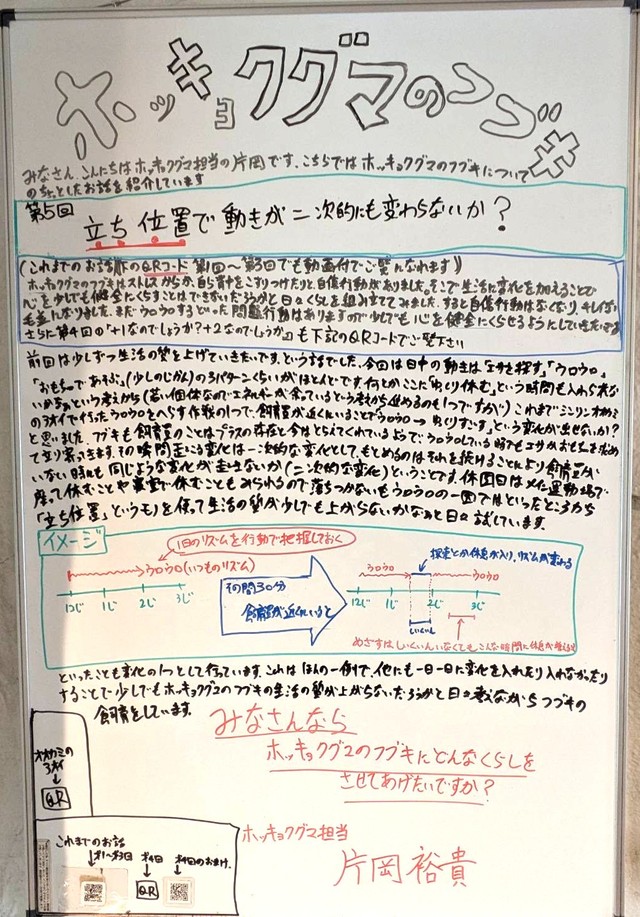 ホッキョクグマのフブキ
みなさん、こんにちはホッキョクグマ担当の片岡です。こちらではホッキョクグマのフブキについて
のちょっとしたお話を紹介しています
第5回
立ち位置で動きが二次的にも変わらないか?
(これまでのお話はQRコード 第1回〜第3回でも動画付でご覧になれます))
ホッキョクグマのフブキはストレスからか、自ら背中をこすりつけたりと自傷行動がありました。そこで生活に変化を加えることで
心を少しでも健全にくらすことはできないだろうかと日々くらしを組み立ててみました。すると自傷行動はなくなり、キレイな
毛並になりました。まだウロウロするといった問題行動はありますので少しでも心を健全にくらせるようにしていきたいです
さらに第4回の「+1なのでしょうか?+2なのでしょうか」も下記のQRコードでご覧下さい
前回は少しずつ生活の質を上げていきたいです。という話でした。今回は日中の動きは「エサを探す」「ウロウロ」
「おもちゃであそぶ」(少しのじかん)の3パターンくらいがほとんどです。何とかここに「ゆっくり休む」という時間も入れられな
いかなぁという考えから(若い個体なのでエネルギーが余っているという考えから進めるのも1つですが)これまでシンリンオオカミ
の3オイで行ったウロウロをへらす作戦の1つで、飼育員が近くにいることでウロウロ→ゆっくりすごす、という変化が出せないか?
と思いました。フブキも飼育員のことはプラスの存在と今はとらえてくれているようで、ウロウロしている時でもエサかおもちゃを求め
て立ち寄ってきます。その瞬間走にる変化は一次的な変化として、もとめるのはそれを続けることにより飼育員が
いない時にも同じような変化が起きないか(二次的な変化)ということです。休園日はメインの運動場で
座って休むことや寝室で休むこともみられるので落ちつかないもウロウロの一因ではといったところから
「立ち位置」というモノを使って生活の質が少しでも上がらないかなぁと日々試しています。
イメージ
1日のリズムを行動で把握しておく
ウロウロ(いつものリズム)
12じ 1じ 2じ 3じ
その間30分
飼育員が近くにいると
探索とか休息が入り、リズムが変わる
ウロウロ ウロウロ
12じ 1じ 2じ 3じ
しいくいん
めざすはしいくいんいなくてもこんな時間に休息が増える
といったことも変化の1つとして行っています。これは ほんの一例で、他にも一日一日に変化を入れたり入れなかったり
することで少しでもホッキョクグマのフブキの生活の質が上がらないだろうかと日々考えながらフブキの
飼育をしています。
みなさんなら
ホッキョクグマのフブキにどんなくらしを
させてあげたいですか?
オオカミの
3オイ
↓
QR
これまでのお話
オ1〜オ3回 オ4回 オ4回のおまけ
QR
ホッキョクグマ担当
片岡裕貴